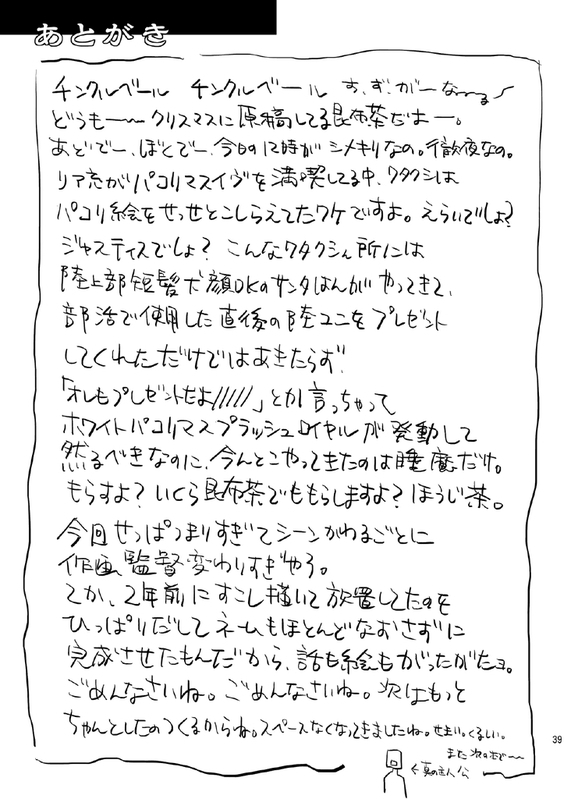 あとがき
チンクルベール チンクルベール す、ず、が一な〜〜る〜
どうも一〜クリスマスに原稿してる昆布茶だよー。
あとで一、ぼとで一、今日の12時がシメキリなの。行徹夜なの。
リア充がパコリマスイヴを満喫してる中、ワタクシは
パコリ絵をせっせとこしらえてたワケですよ。えらいでしょ?
ジャスティスでしょ? こんなワタクシん所には
陸上部短髪犬顔OKのサンタはんがやってきて、
部活で使用した直後の陸ユニをプレゼント
してくれただけではあきたらず、
「オレもプレゼントだよ/////」とか言っちゃって
ホワイトパコリマスプラッシュロイヤルが発動して
然るべきなのに、今んとこやってきたのは睡魔だけ。
もらすよ? いくら昆布茶でももらしますよ? ほうじ茶。
今回せっぱつまりすぎてシーンがわるごとに
作画監督変わりすぎやろ。
てか、2年前にすこし描いて放置してたのを
ひっぱりだしてネームもほとんどなおさずに
完成させたもんだから、話も絵もがったがたョ。
ごめんなさいね。ごめんなさいね。次はもっと
ちゃんとしたのつくるからね。スペースなくなってきましたね。せまい。くるしい。
また次の本で〜〜
←真の主人公
39